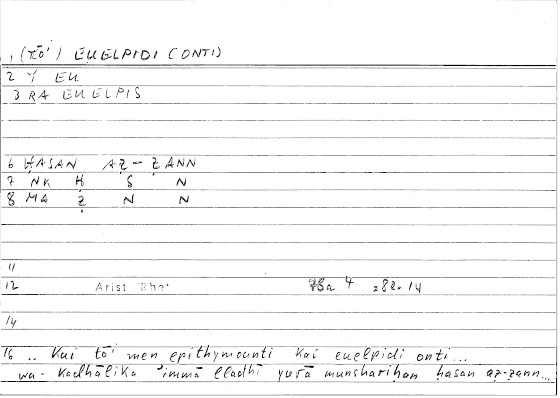 1 (τō') EUELPIDI (ONTI)
2 Y EU
3 RA EUELPIS
6 ḤASAN AẒ-ẒANN
7 NK Ḥ S N
8 MA Ẓ N N
11
12 Arist Rhet 4 282.14
14
16 .. Kai tō' men epithymounti kai euelpidi onti...
wa-kadhālika 'immā lladhī yurā munshariḥan ḥasan aẓ-ẓann...